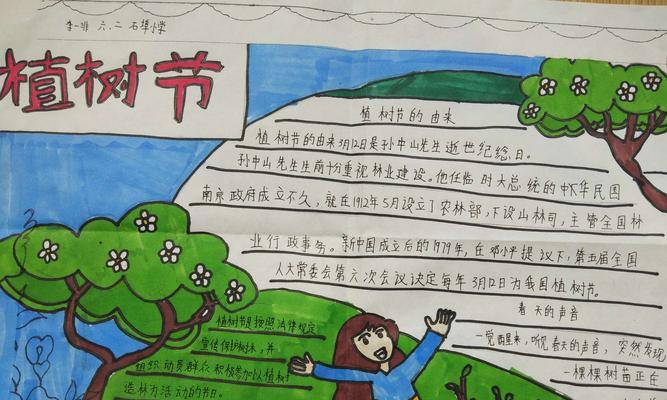 李一非 六.二 石埠小学
植树节
植树节的由来
植树节的由来3月12日是孙中山先生逝世纪念日。
孙中山先生生前十分重视林业建设。他任临时大总统的中华民国
南京政府成立不久，就在1912年5月设立了农林部，下设山林司，主管全国林
业行政事务。新中国成立后的1979年，在邓小平提议下，第五届全国
人大常委会第六次会议决定每年3月12日为我国植树节。
春天的声音
一觉醒来，听见春天的声音，突然发现
一棵棵树苗正在
植树节是按照法律规定
宣传保护树木，并
组织动员群众积极参加以植树
造林为活动的节日。